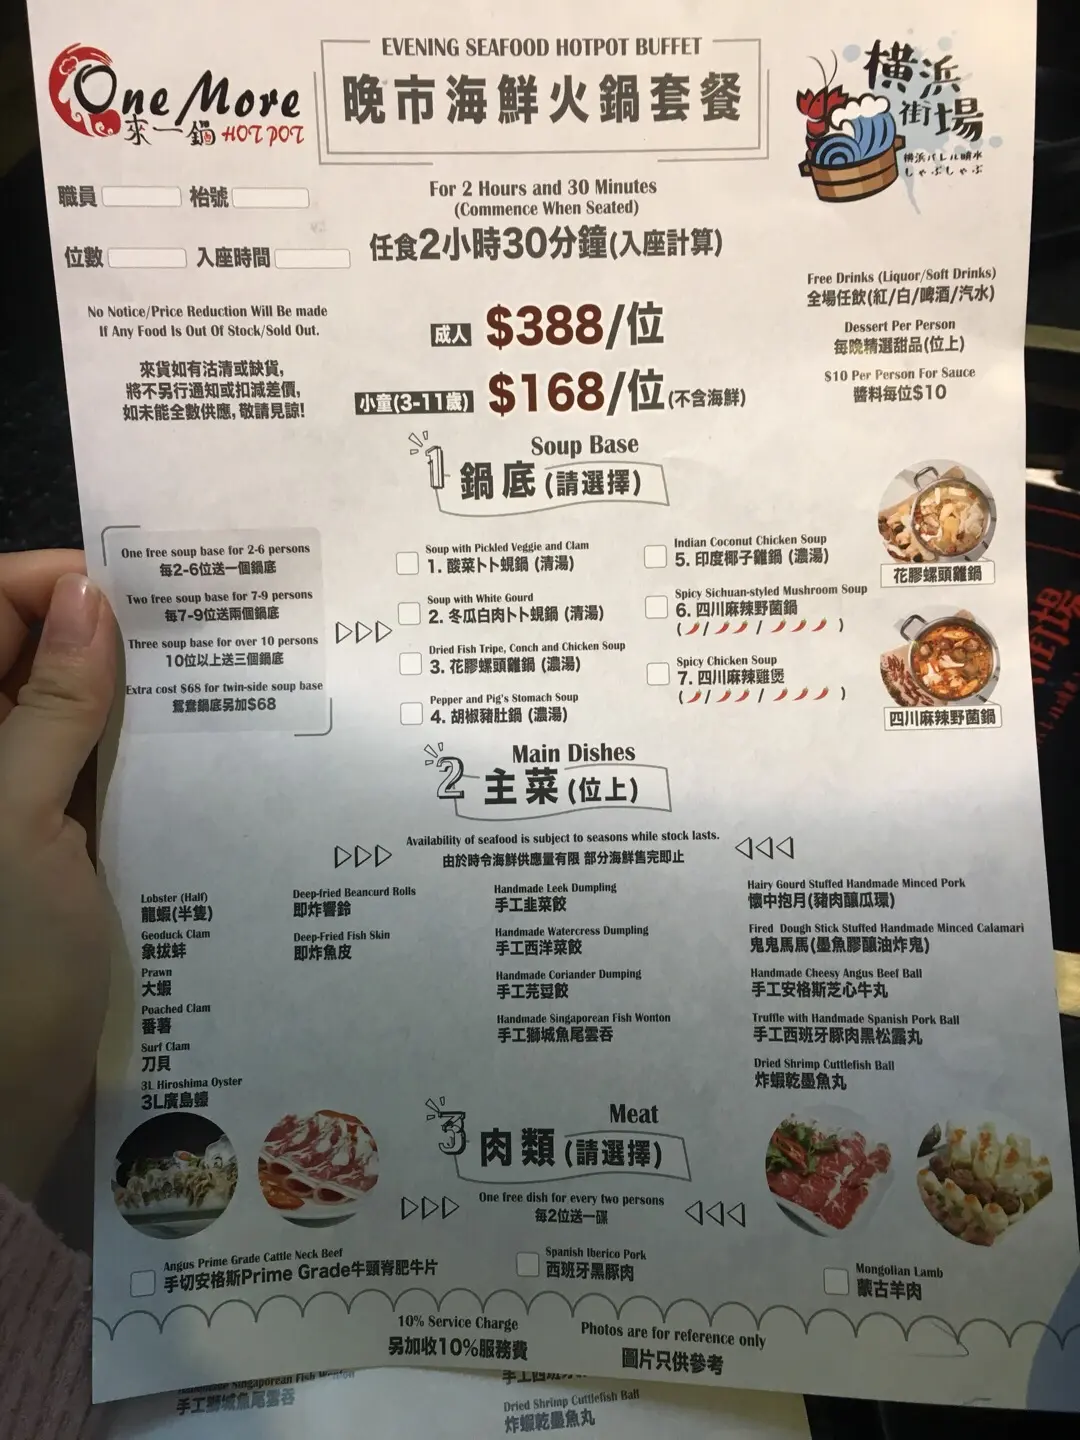 One More
來一鍋 HOT POT
EVENING SEAFOOD HOTPOT BUFFET
晚市海鮮火鍋套餐
橫浜
街場
横浜バレル晴水
しゃぶしゃぶ
職員
枱號
位數
入座時間
For 2 Hours and 30 Minutes
(Commence When Seated)
任食2小時30分鐘(入座計算)
No Notice/Price Reduction Will Be made
If Any Food Is Out Of Stock/Sold Out.
來貨如有沽清或缺貨,
將不另行通知或扣減差價,
如未能全數供應, 敬請見諒!
成人 $388/位
小童(3-11歲) $168/位(不含海鮮)
Free Drinks (Liquor/Soft Drinks)
全場任飲(紅/白/啤酒/汽水)
Dessert Per Person
每晚精選甜品(位上)
$10 Per Person For Sauce
醬料每位$10
1 Soup Base
鍋底(請選擇)
One free soup base for 2-6 persons
每2-6位送一個鍋底
Two free soup base for 7-9 persons
每7-9位送兩個鍋底
Three soup base for over 10 persons
10位以上送三個鍋底
Extra cost $68 for twin-side soup base
鴛鴦鍋底另加$68
Soup with Pickled Veggie and Clam
1. 酸菜卜卜蜆鍋 (清湯)
Soup with White Gourd
2. 冬瓜白肉卜卜蜆鍋 (清湯)
Dried Fish Tripe, Conch and Chicken Soup
3. 花膠螺頭雞鍋 (濃湯)
Pepper and Pig's Stomach Soup
4. 胡椒豬肚鍋 (濃湯)
Indian Coconut Chicken Soup
5. 印度椰子雞鍋 (濃湯)
Spicy Sichuan-styled Mushroom Soup
6. 四川麻辣野菌鍋
( / / )
Spicy Chicken Soup
7. 四川麻辣雞煲
( / / )
花膠螺頭雞鍋
四川麻辣野菌鍋
2 Main Dishes
主菜(位上)
Availability of seafood is subject to seasons while stock lasts.
由於時令海鮮供應量有限 部分海鮮售完即止
Lobster (Half)
龍蝦(半隻)
Geoduck Clam
象拔蚌
Prawn
大蝦
Poached Clam
番薯
Surf Clam
刀貝
3L Hiroshima Oyster
3L廣島蠔
Deep-fried Beancurd Rolls
即炸響鈴
Deep-Fried Fish Skin
即炸魚皮
Handmade Leek Dumpling
手工韭菜餃
Handmade Watercress Dumpling
手工西洋菜餃
Handmade Coriander Dumping
手工芫荽餃
Handmade Singaporean Fish Wonton
手工獅城魚尾雲吞
Hairy Gourd Stuffed Handmade Minced Pork
懷中抱月(豬肉釀瓜環)
Fired Dough Stick Stuffed Handmade Minced Calamari
鬼鬼馬馬(墨魚膠釀油炸鬼)
Handmade Cheesy Angus Beef Ball
手工安格斯芝心牛丸
Truffle with Handmade Spanish Pork Ball
手工西班牙豚肉黑松露丸
Dried Shrimp Cuttlefish Ball
炸蝦乾墨魚丸
3 Meat
肉類(請選擇)
One free dish for every two persons
每2位送一碟
Angus Prime Grade Cattle Neck Beef
手切安格斯Prime Grade牛頸脊肥牛片
Spanish Iberico Pork
西班牙黑豚肉
Mongolian Lamb
蒙古羊肉
10% Service Charge
另加收10%服務費
Photos are for reference only
圖片只供參考
Handmade Singaporean Fish Wonton
手工獅城魚尾雲吞
手工西班牙
Dried Shrimp Cuttlefish Ball
炸蝦乾墨魚丸